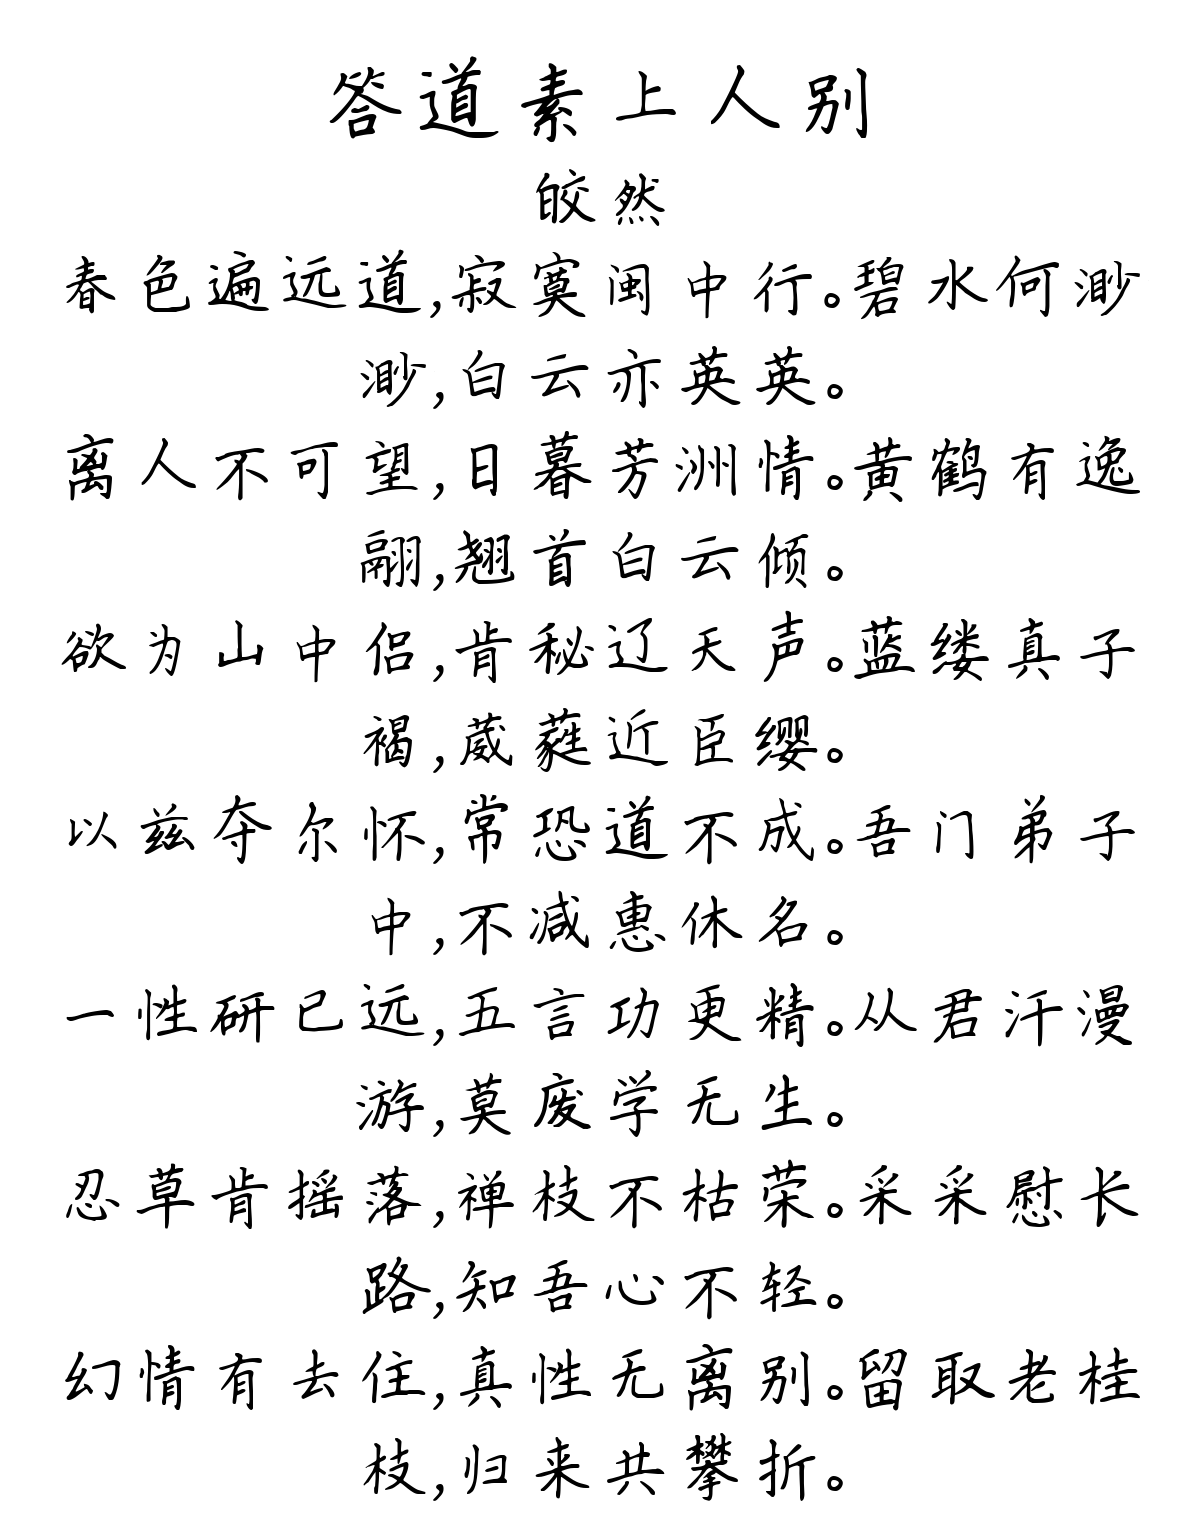 答道素上人别
皎然
春色遍远道,寂寞闽中行。碧水何渺
渺,白云亦英英。
离人不可望,日暮芳洲情。黄鹤有逸
翮,翘首白云倾。
欲为山中侣,肯秘辽天声。蓝缕真子
褐,葳蕤近臣缨。
以兹夺尔怀,常恐道不成。吾门弟子
中,不减惠休名。
一性研已远,五言功更精。从君汗漫
游,莫废学无生。
忍草肯摇落,禅枝不枯荣。采采慰长
路,知吾心不轻。
幻情有去住,真性无离别。留取老桂
枝,归来共攀折。